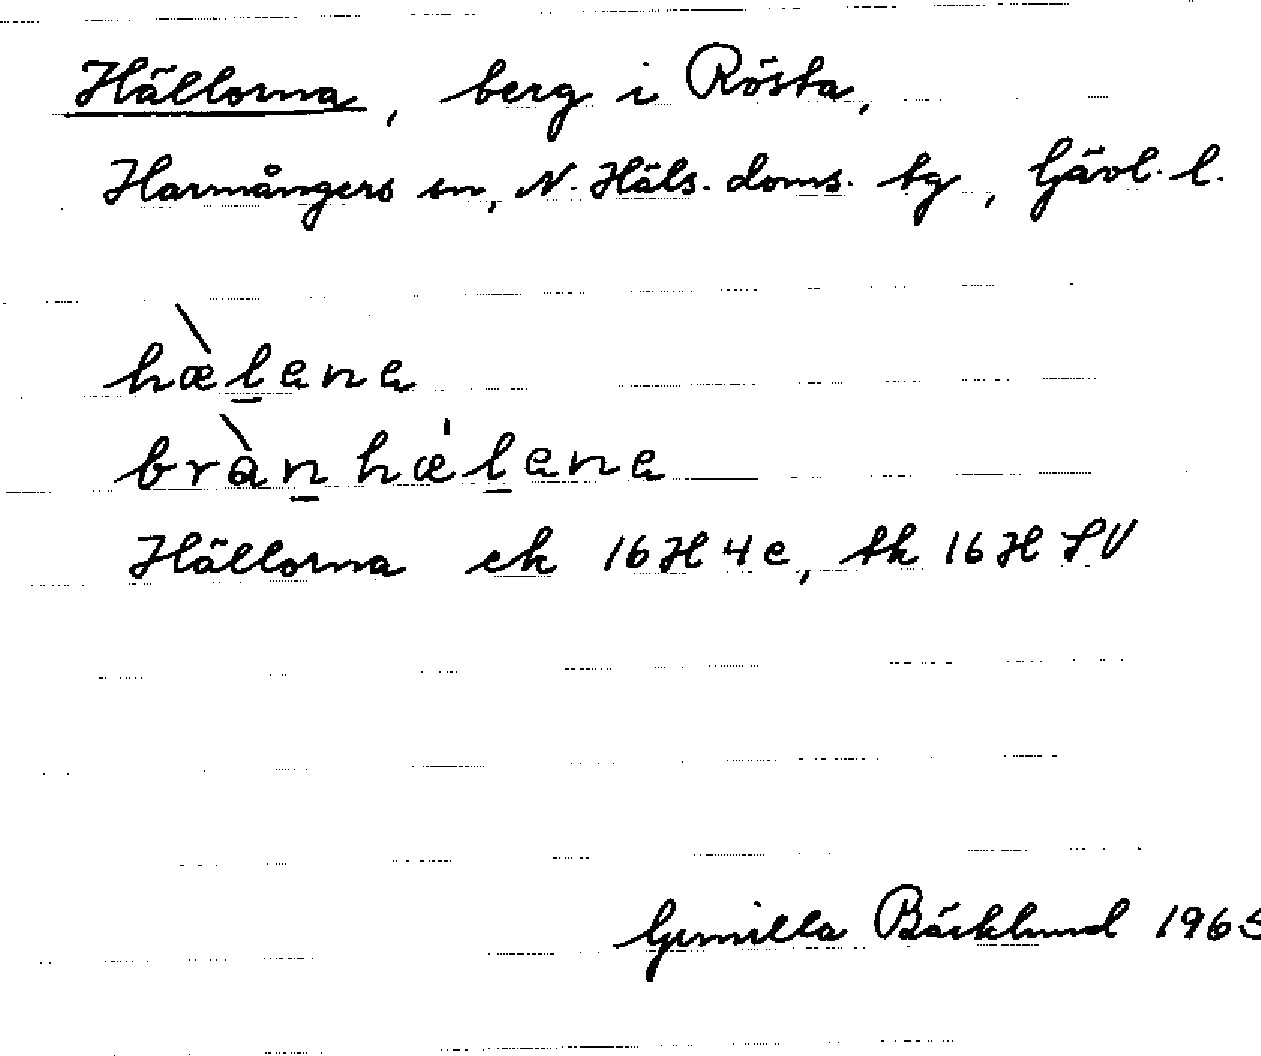 Hällorna, berg i Rösta,
Harmångers sn, N. Häls. doms. tg, Gävl. l.
hæ̀lena
bràn hǽlena
Hällorna ek 16H4e, tk 16H SV
Gunilla Bäcklund 1965